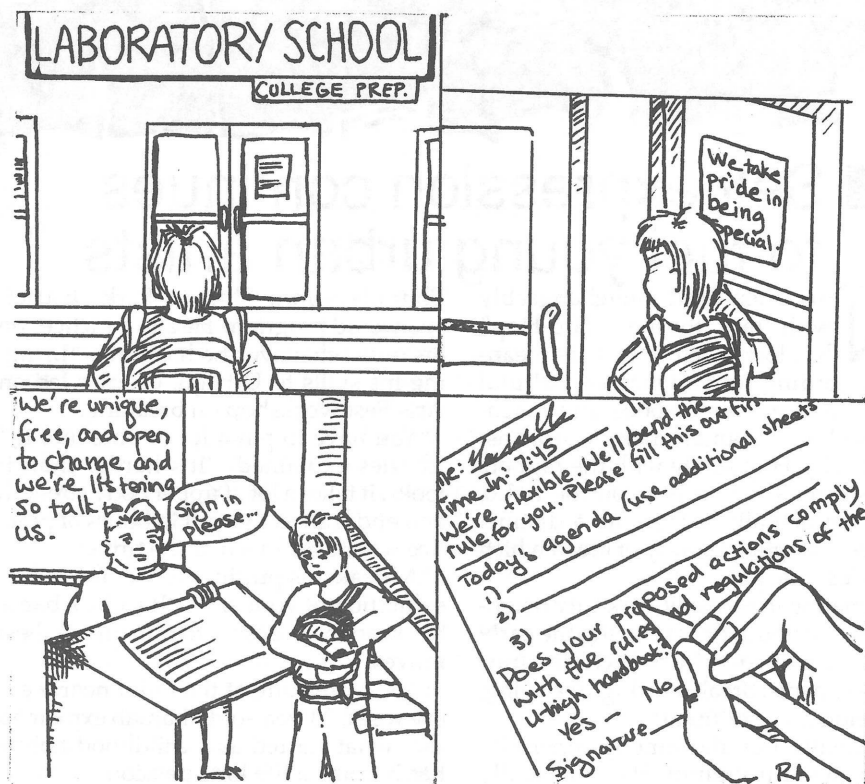 LABORATORY SCHOOL
COLLEGE PREP.
We take
pride in
being
special.
We're unique,
free, and open
to change and
we're listening
so talk to
us.
Sign in
please...
Time In: 7:45
We're flexible. We'll bend the
rule for you. Please fill this out
Today's agenda (use additional sheets
1)
2)
3)
Does your proposed actions comply
with the rules and regulations of the
U-high handbook?
Yes – No
Signature
RA